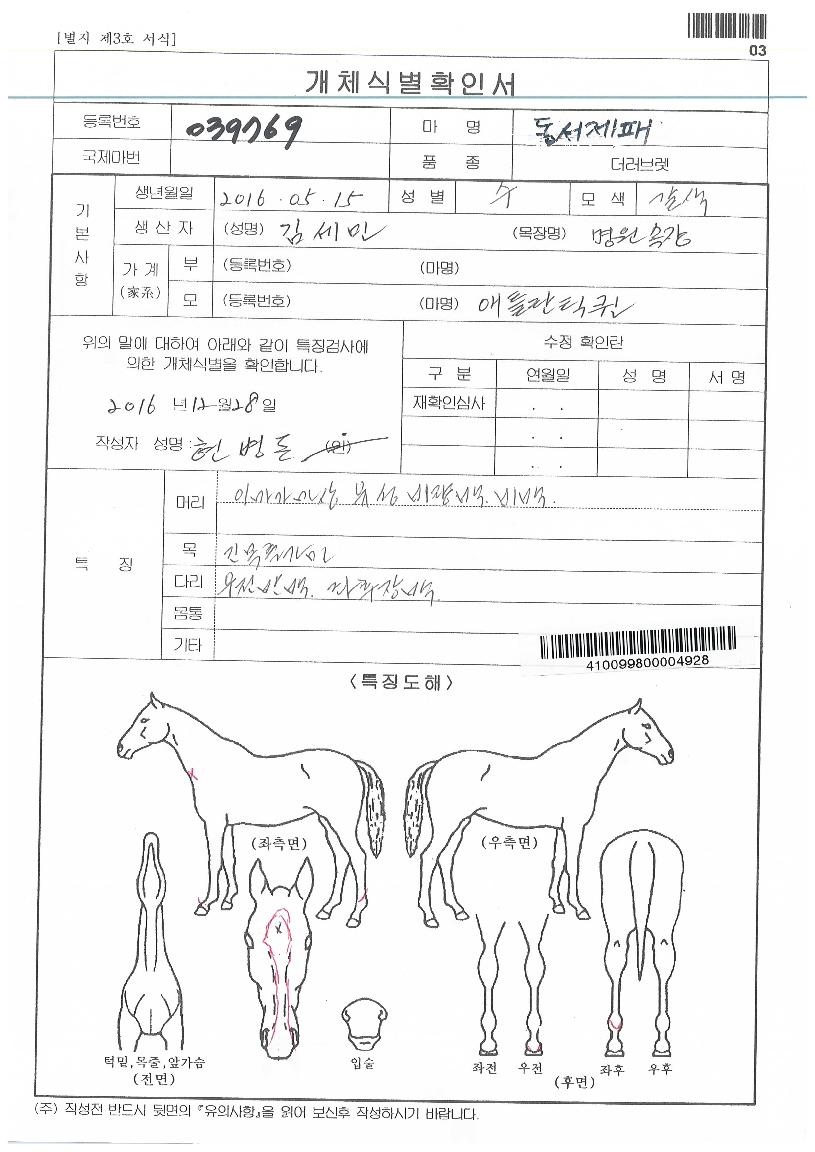 [별지 제3호 서식]
03
개체식별확인서
등록번호 039769 마 명 동서제패
국제마번 품 종 더러브렛
기본사항
생년월일 2016.05.15 성 별 수 모 색 갈색
생 산 자 (성명) 김세민 (목장명) 명원목장
가 계 (家系) 부 (등록번호) (마명)
모 (등록번호) (마명) 애틀란틱퀸
위의 말에 대하여 아래와 같이 특징검사에
의한 개체식별을 확인합니다.
2016 년 12월 28일
작성자 성명: 현병돈 (인)
수정 확인란
구 분 연월일 성 명 서 명
재확인심사 . .
. .
. .
특 징
머리 비백.
목
다리 우전
몸통
기타
410099800004928
<특징도해>
(좌측면) (우측면)
턱밑,목줄,앞가슴
(전면)
입술
좌전 우전 좌후 우후
(후면)
(주) 작성전 반드시 뒷면의 『유의사항』을 읽어 보신후 작성하시기 바랍니다.